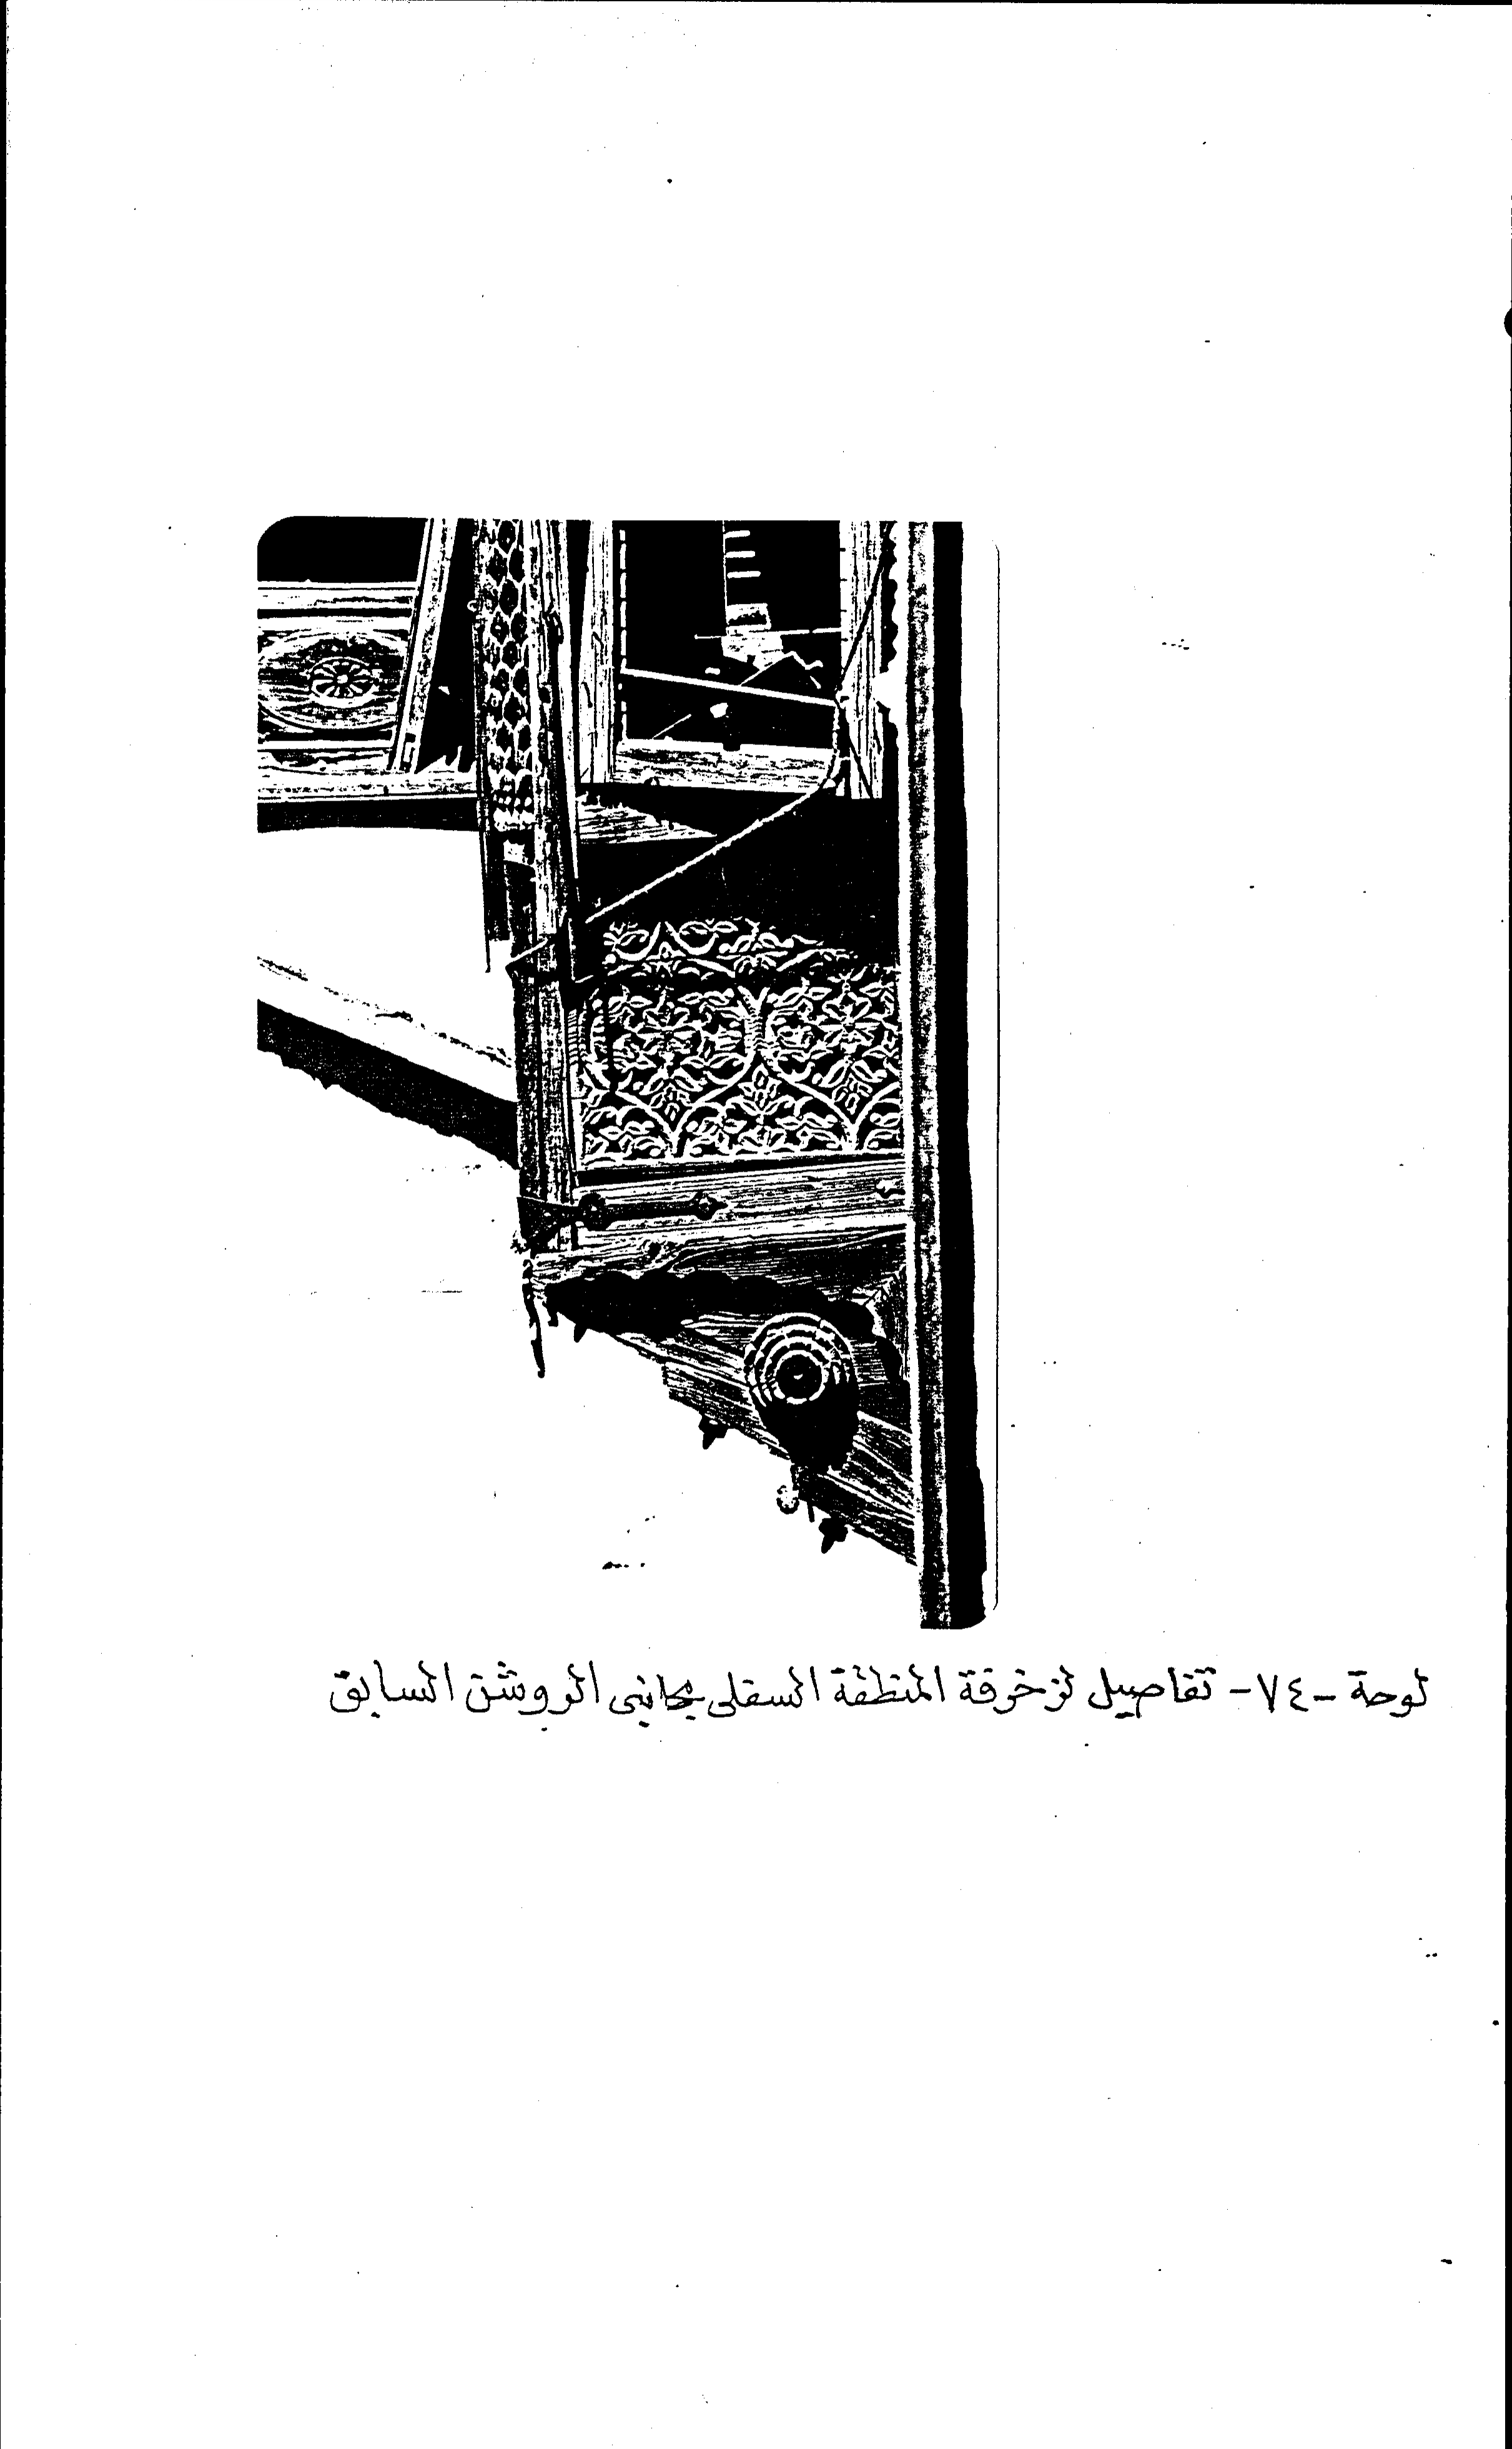 لوحة -٧٤- تفاصيل لزخرفة المنطقة السفلى بجانبى الروشن السابق